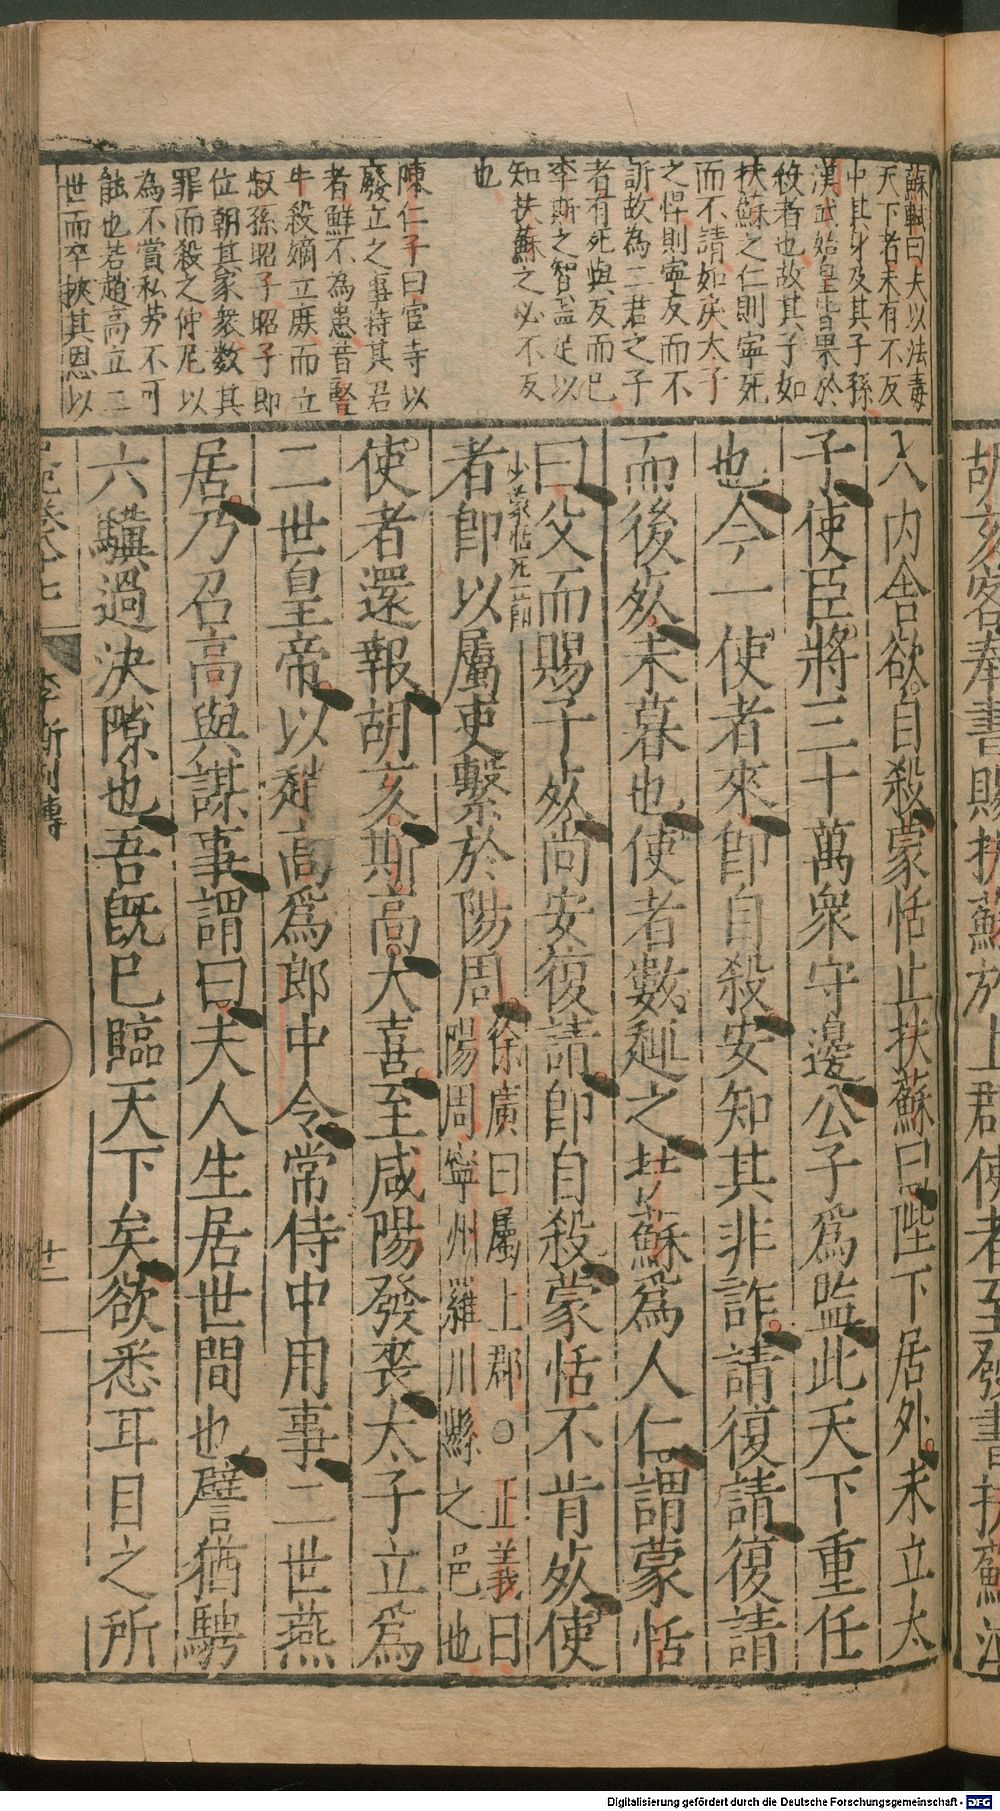 蘇軾曰夫以法毒
天下者未有不反
中其身及其子孫
漢武始皇皆果於
殺者也故其子如
扶蘇之仁則寧死
而不請如戾太子
之悍則寧反而不
訴故為二君之子
者有死與反而已
李斯之智蓋足以
知扶蘇之必不反
也
陳仁子曰宦寺以
廢立之事持其君
者鮮不為患昔豎
牛殺嫡立庶而立
叔孫昭子昭子即
位朝其家衆數其
罪而殺之仲尼以
為不賞私勞不可
能也若趙高立二
世而卒挾其恩以
入內舍欲自殺蒙恬止扶蘇曰陛下居外未立太
子使臣將三十萬衆守邊公子爲監此天下重任
也今一使者來即自殺安知其非詐請復請復請
而後死未暮也使者數趣之扶蘇爲人仁謂蒙恬
曰父而賜子死尚安復請即自殺蒙恬不肯死使
少蒙恬死一節
者即以屬吏繫於陽周徐廣曰屬上郡○正義曰
陽周寧州羅川縣之邑也
使者還報胡亥斯高大喜至咸陽發喪太子立爲
二世皇帝以趙高爲郎中令常侍中用事二世燕
居乃召高與謀事謂曰夫人生居世間也譬猶騁
六驥過決隙也吾旣已臨天下矣欲悉耳目之所
李斯列傳
廿二
胡亥客奉書賜扶蘇於上郡使者至發書扶蘇泣
Digitalisierung gefördert durch die Deutsche Forschungsgemeinschaft - DFG